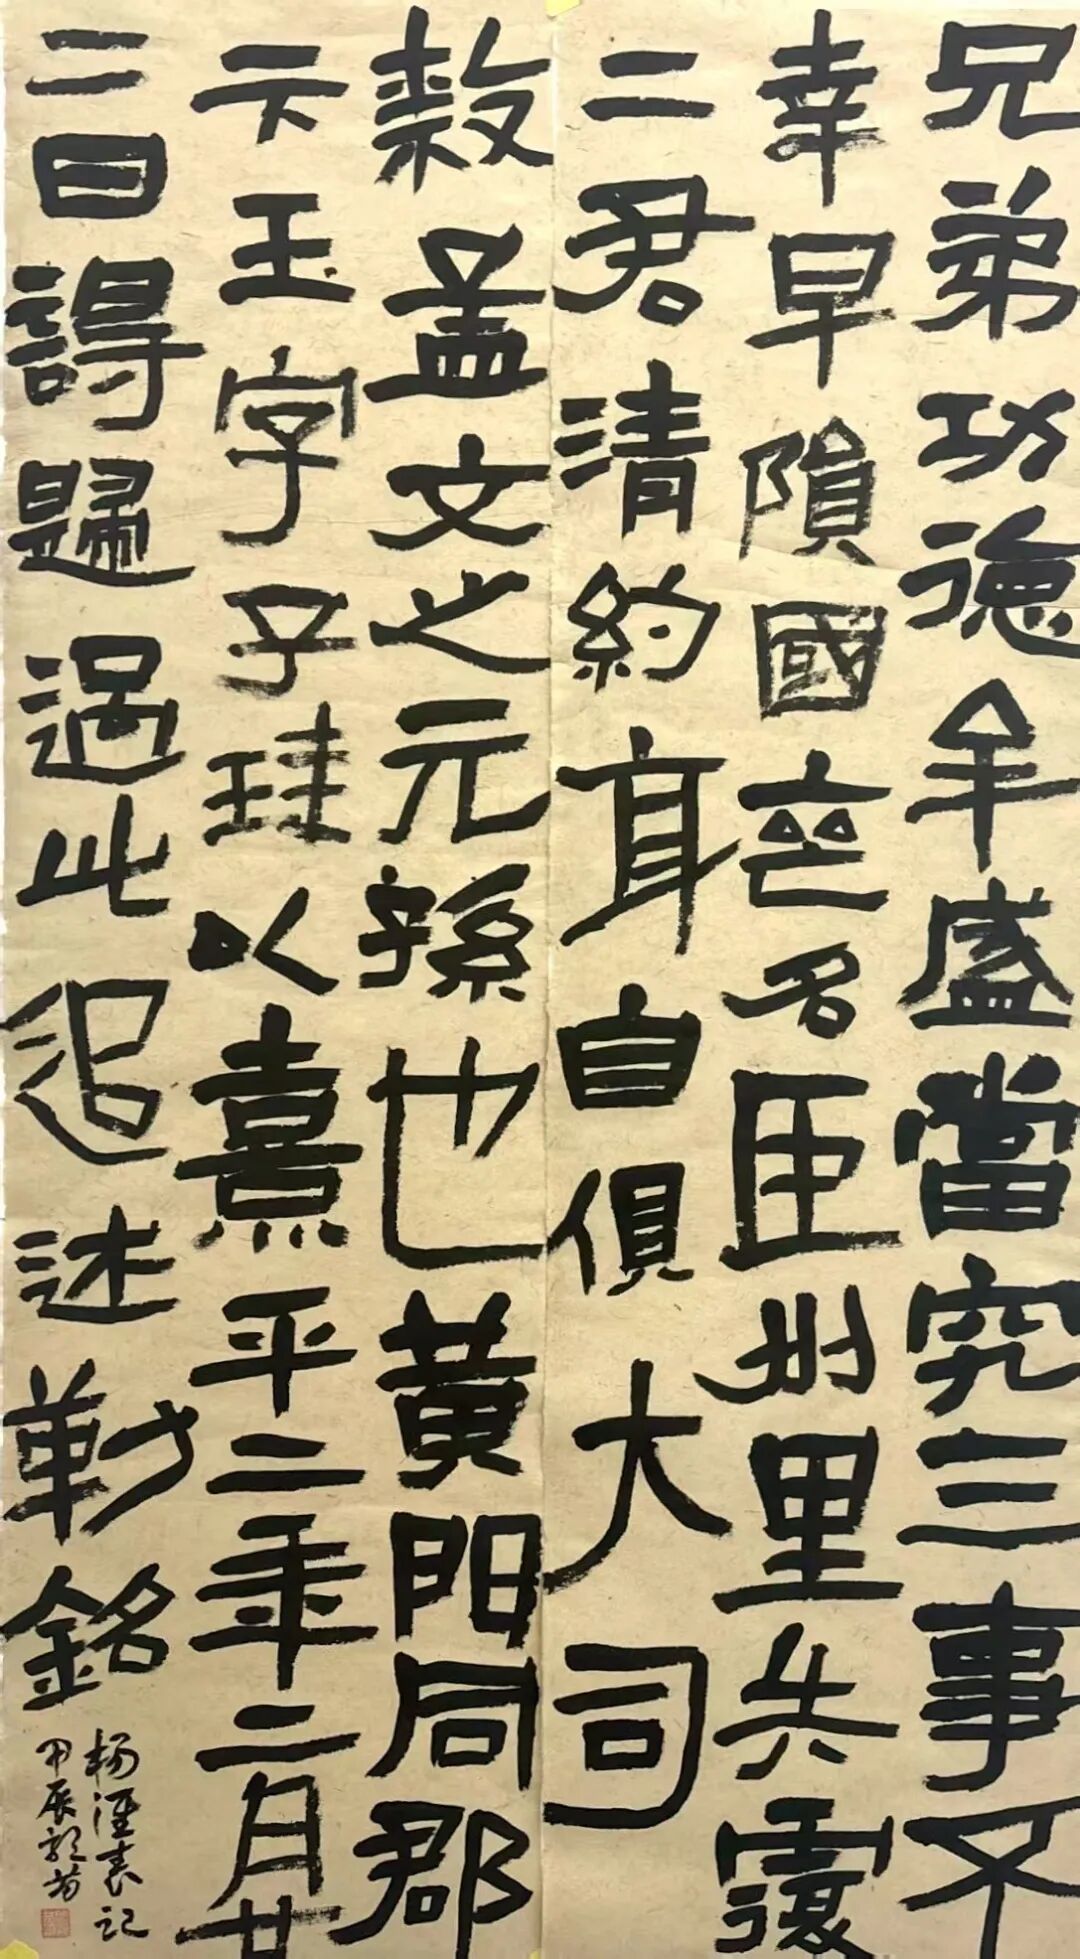 兄弟功德牟盛當究三事不
幸早隕國喪名臣州里失覆
二君清約身自俱大司
隸孟文之元孫也黃門同郡
卞玉字子珪以熹平二年二月廿
二日謁歸過此追述勒銘
楊淮表記
甲辰